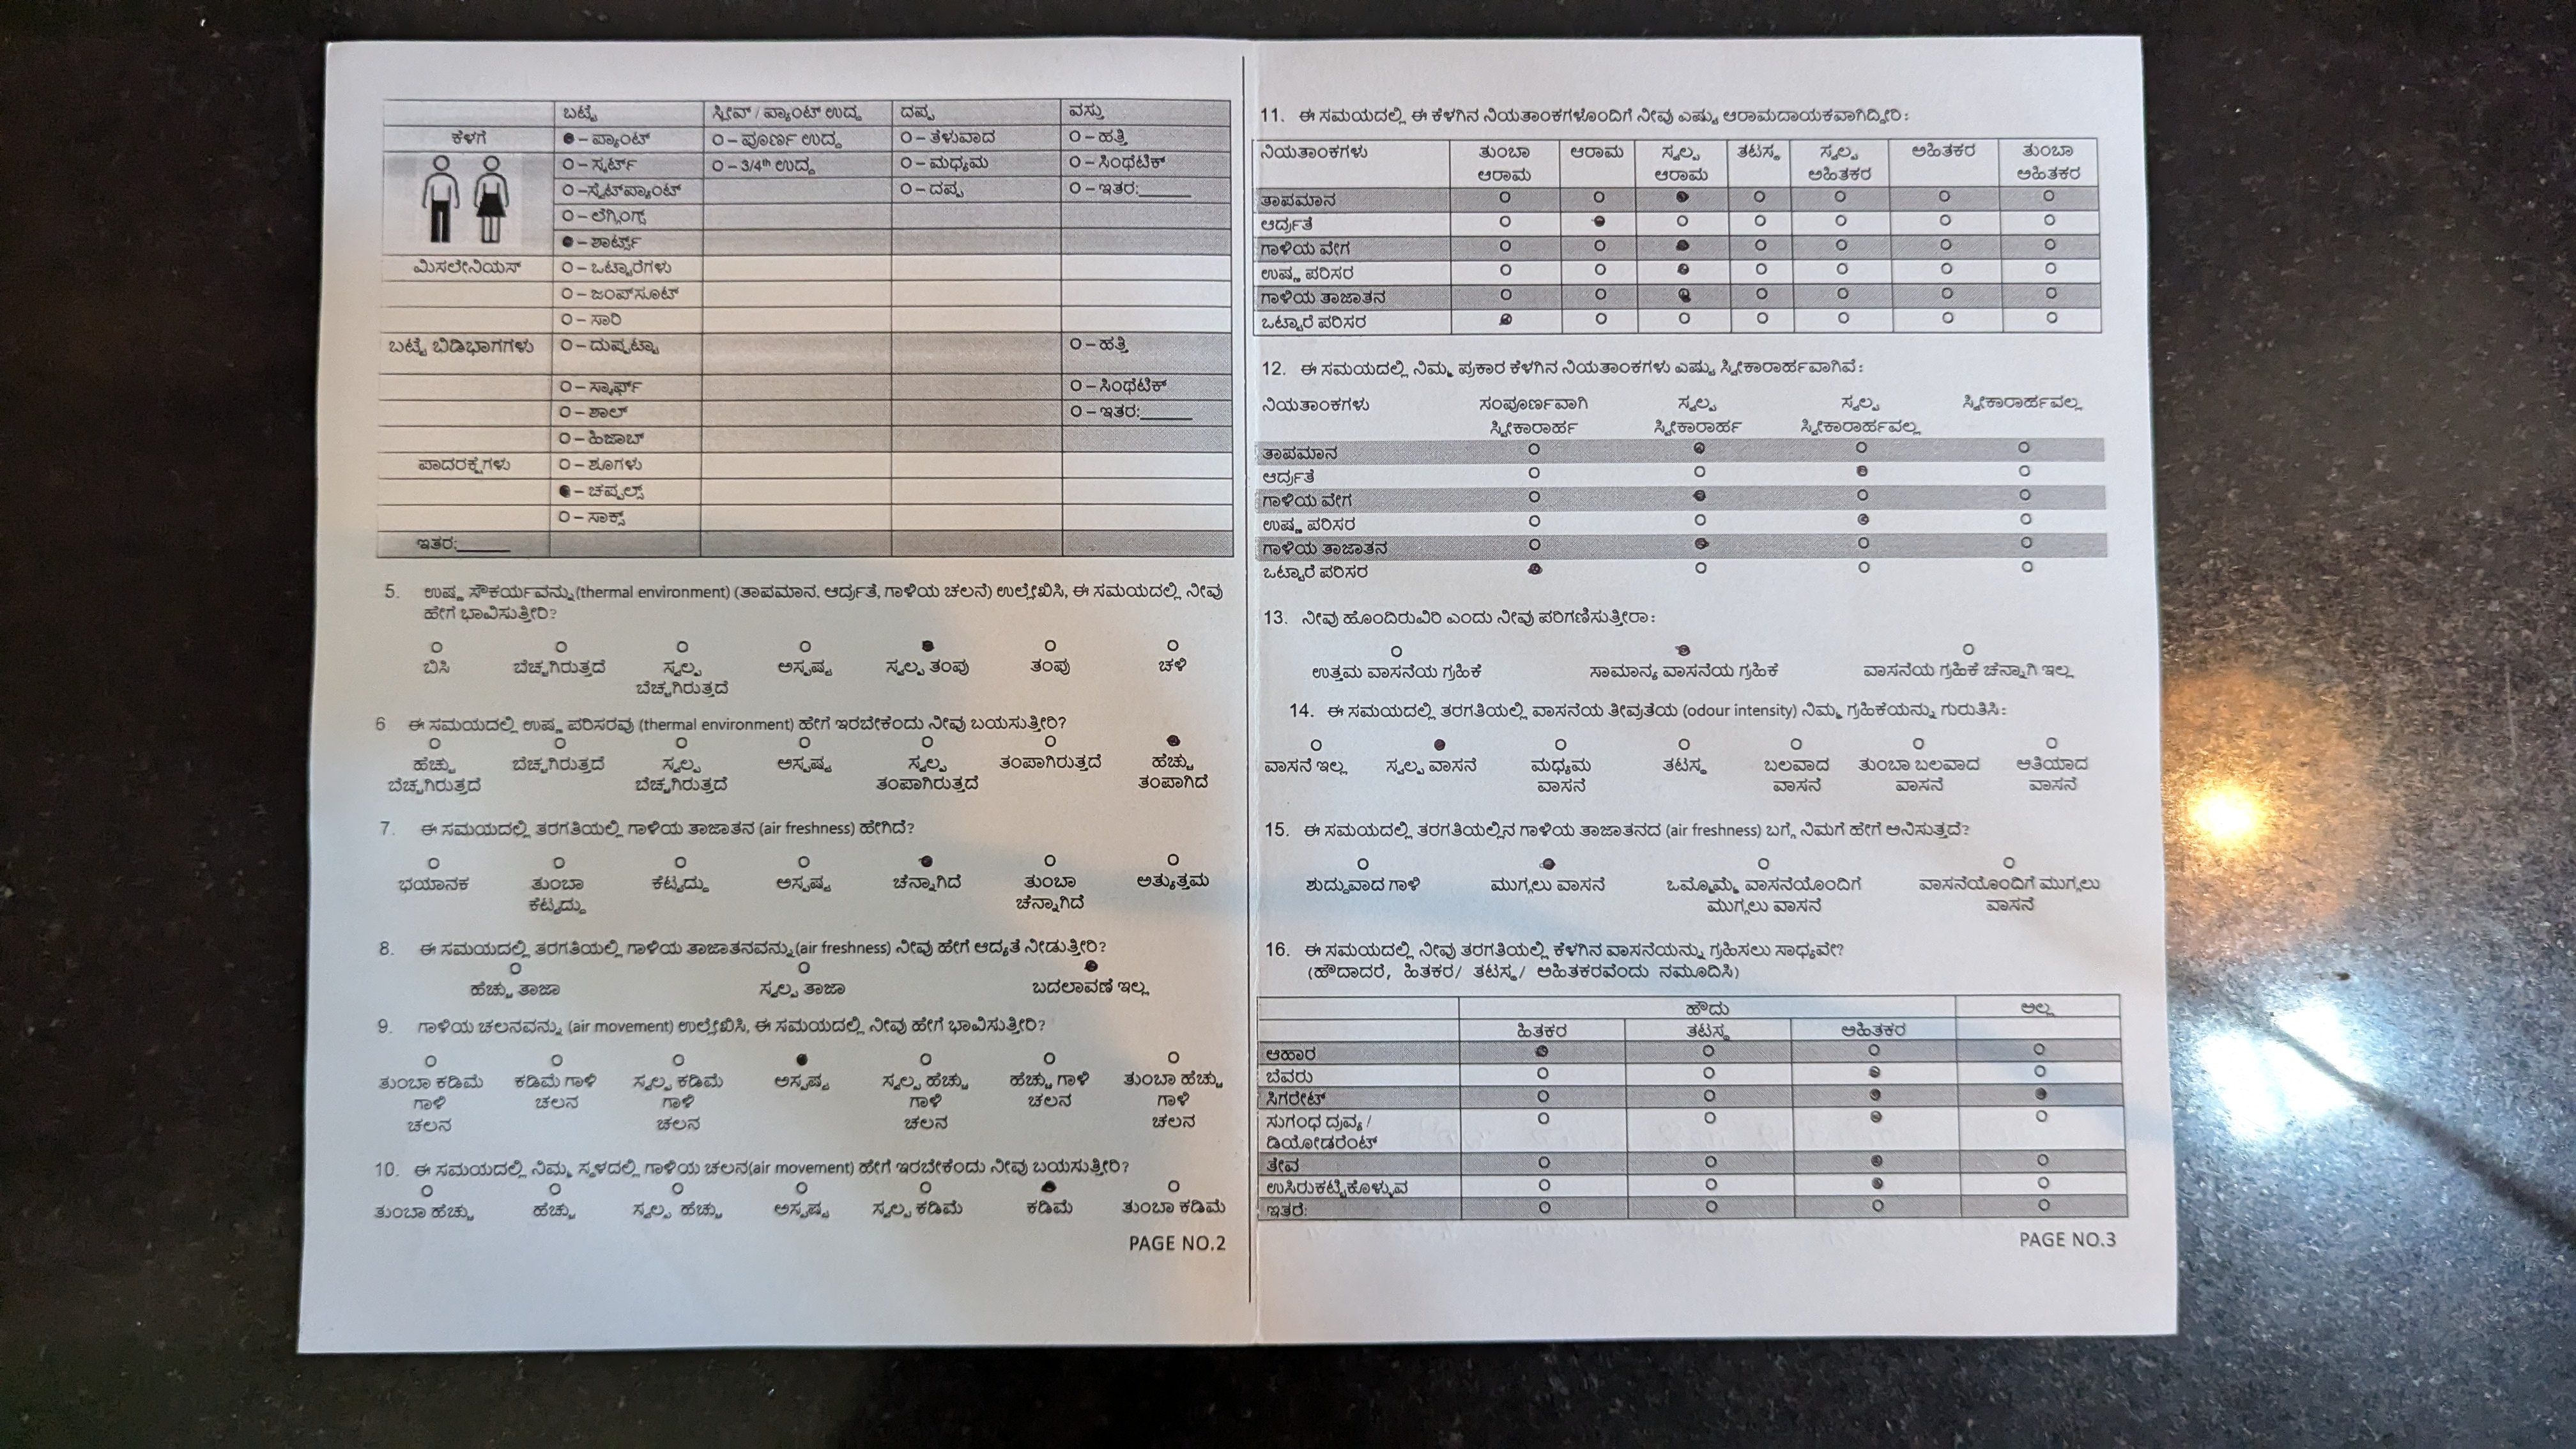 ಬಟ್ಟೆ ಸ್ಲೀವ್ / ಪ್ಯಾಂಟ್ ಉದ್ದ ದಪ್ಪ ವಸ್ತು
ಕೆಳಗೆ ● – ಪ್ಯಾಂಟ್ O – ಪೂರ್ಣ ಉದ್ದ O – ತೆಳುವಾದ O – ಹತ್ತಿ
O – ಸ್ಕರ್ಟ್ O – 3/4th ಉದ್ದ O – ಮಧ್ಯಮ O – ಸಿಂಥೆಟಿಕ್
O –ಸ್ವೆಟ್‌ಪ್ಯಾಂಟ್ O – ದಪ್ಪ O – ಇತರ:______
O – ಲೆಗ್ಗಿಂಗ್ಸ್
● – ಶಾರ್ಟ್ಸ್
ಮಿಸಲೇನಿಯಸ್ O – ಒಟ್ಟಾರೆಗಳು
O – ಜಂಪ್‌ಸೂಟ್
O – ಸಾರಿ
ಬಟ್ಟೆ ಬಿಡಿಭಾಗಗಳು O – ದುಪ್ಪಟ್ಟಾ O – ಹತ್ತಿ
O – ಸ್ಕಾರ್ಫ್ O – ಸಿಂಥೆಟಿಕ್
O – ಶಾಲ್ O – ಇತರ:______
O – ಹಿಜಾಬ್
ಪಾದರಕ್ಷೆಗಳು O – ಶೂಗಳು
● – ಚಪ್ಪಲ್ಸ್
O – ಸಾಕ್ಸ್
ಇತರ:______
5. ಉಷ್ಣ ಸೌಕರ್ಯವನ್ನು (thermal environment) (ತಾಪಮಾನ. ಆರ್ದ್ರತೆ, ಗಾಳಿಯ ಚಲನೆ) ಉಲ್ಲೇಖಿಸಿ, ಈ ಸಮಯದಲ್ಲಿ ನೀವು
ಹೇಗೆ ಭಾವಿಸುತ್ತೀರಿ?
O O O O ● O O
ಬಿಸಿ ಬೆಚ್ಚಗಿರುತ್ತದೆ ಸ್ವಲ್ಪ ಅಸ್ಪಷ್ಟ ಸ್ವಲ್ಪ ತಂಪು ತಂಪು ಚಳಿ
ಬೆಚ್ಚಗಿರುತ್ತದೆ
6 ಈ ಸಮಯದಲ್ಲಿ ಉಷ್ಣ ಪರಿಸರವು (thermal environment) ಹೇಗೆ ಇರಬೇಕೆಂದು ನೀವು ಬಯಸುತ್ತೀರಿ?
O O O O O O ●
ಹೆಚ್ಚು ಬೆಚ್ಚಗಿರುತ್ತದೆ ಸ್ವಲ್ಪ ಅಸ್ಪಷ್ಟ ಸ್ವಲ್ಪ ತಂಪಾಗಿರುತ್ತದೆ ಹೆಚ್ಚು
ಬೆಚ್ಚಗಿರುತ್ತದೆ ಬೆಚ್ಚಗಿರುತ್ತದೆ ತಂಪಾಗಿರುತ್ತದೆ ತಂಪಾಗಿದೆ
7. ಈ ಸಮಯದಲ್ಲಿ ತರಗತಿಯಲ್ಲಿ ಗಾಳಿಯ ತಾಜಾತನ (air freshness) ಹೇಗಿದೆ?
O O O O ● O O
ಭಯಾನಕ ತುಂಬಾ ಕೆಟ್ಟದ್ದು ಅಸ್ಪಷ್ಟ ಚೆನ್ನಾಗಿದೆ ತುಂಬಾ ಅತ್ಯುತ್ತಮ
ಕೆಟ್ಟದ್ದು ಚೆನ್ನಾಗಿದೆ
8. ಈ ಸಮಯದಲ್ಲಿ ತರಗತಿಯಲ್ಲಿ ಗಾಳಿಯ ತಾಜಾತನವನ್ನು (air freshness) ನೀವು ಹೇಗೆ ಆದ್ಯತೆ ನೀಡುತ್ತೀರಿ?
O O ●
ಹೆಚ್ಚು ತಾಜಾ ಸ್ವಲ್ಪ ತಾಜಾ ಬದಲಾವಣೆ ಇಲ್ಲ
9. ಗಾಳಿಯ ಚಲನವನ್ನು (air movement) ಉಲ್ಲೇಖಿಸಿ, ಈ ಸಮಯದಲ್ಲಿ ನೀವು ಹೇಗೆ ಭಾವಿಸುತ್ತೀರಿ?
O O O ● O O O
ತುಂಬಾ ಕಡಿಮೆ ಕಡಿಮೆ ಗಾಳಿ ಸ್ವಲ್ಪ ಕಡಿಮೆ ಅಸ್ಪಷ್ಟ ಸ್ವಲ್ಪ ಹೆಚ್ಚು ಹೆಚ್ಚು ಗಾಳಿ ತುಂಬಾ ಹೆಚ್ಚು
ಗಾಳಿ ಚಲನ ಗಾಳಿ ಗಾಳಿ ಚಲನ ಗಾಳಿ
ಚಲನ ಚಲನ ಚಲನ ಚಲನ
10. ಈ ಸಮಯದಲ್ಲಿ ನಿಮ್ಮ ಸ್ಥಳದಲ್ಲಿ ಗಾಳಿಯ ಚಲನ(air movement) ಹೇಗೆ ಇರಬೇಕೆಂದು ನೀವು ಬಯಸುತ್ತೀರಿ?
O O O O O ● O
ತುಂಬಾ ಹೆಚ್ಚು ಹೆಚ್ಚು ಸ್ವಲ್ಪ ಹೆಚ್ಚು ಅಸ್ಪಷ್ಟ ಸ್ವಲ್ಪ ಕಡಿಮೆ ಕಡಿಮೆ ತುಂಬಾ ಕಡಿಮೆ
PAGE NO.2
11. ಈ ಸಮಯದಲ್ಲಿ ಈ ಕೆಳಗಿನ ನಿಯತಾಂಕಗಳೊಂದಿಗೆ ನೀವು ಎಷ್ಟು ಆರಾಮದಾಯಕವಾಗಿದ್ದೀರಿ:
ನಿಯತಾಂಕಗಳು ತುಂಬಾ ಆರಾಮ ಸ್ವಲ್ಪ ತಟಸ್ಥ ಸ್ವಲ್ಪ ಅಹಿತಕರ ತುಂಬಾ
ಆರಾಮ ಆರಾಮ ಅಹಿತಕರ ಅಹಿತಕರ
ತಾಪಮಾನ O O ● O O O O
ಆರ್ದ್ರತೆ O ● O O O O O
ಗಾಳಿಯ ವೇಗ O O ● O O O O
ಉಷ್ಣ ಪರಿಸರ O O ● O O O O
ಗಾಳಿಯ ತಾಜಾತನ O O ● O O O O
ಒಟ್ಟಾರೆ ಪರಿಸರ ● O O O O O O
12. ಈ ಸಮಯದಲ್ಲಿ ನಿಮ್ಮ ಪ್ರಕಾರ ಕೆಳಗಿನ ನಿಯತಾಂಕಗಳು ಎಷ್ಟು ಸ್ವೀಕಾರಾರ್ಹವಾಗಿವೆ:
ನಿಯತಾಂಕಗಳು ಸಂಪೂರ್ಣವಾಗಿ ಸ್ವಲ್ಪ ಸ್ವಲ್ಪ ಸ್ವೀಕಾರಾರ್ಹವಲ್ಲ
ಸ್ವೀಕಾರಾರ್ಹ ಸ್ವೀಕಾರಾರ್ಹ ಸ್ವೀಕಾರಾರ್ಹವಲ್ಲ
ತಾಪಮಾನ O ● O O
ಆರ್ದ್ರತೆ O O ● O
ಗಾಳಿಯ ವೇಗ O ● O O
ಉಷ್ಣ ಪರಿಸರ O O ● O
ಗಾಳಿಯ ತಾಜಾತನ O ● O O
ಒಟ್ಟಾರೆ ಪರಿಸರ ● O O O
13. ನೀವು ಹೊಂದಿರುವಿರಿ ಎಂದು ನೀವು ಪರಿಗಣಿಸುತ್ತೀರಾ:
O ● O
ಉತ್ತಮ ವಾಸನೆಯ ಗ್ರಹಿಕೆ ಸಾಮಾನ್ಯ ವಾಸನೆಯ ಗ್ರಹಿಕೆ ವಾಸನೆಯ ಗ್ರಹಿಕೆ ಚೆನ್ನಾಗಿ ಇಲ್ಲ
14. ಈ ಸಮಯದಲ್ಲಿ ತರಗತಿಯಲ್ಲಿ ವಾಸನೆಯ ತೀವ್ರತೆಯ (odour intensity) ನಿಮ್ಮ ಗ್ರಹಿಕೆಯನ್ನು ಗುರುತಿಸಿ:
O ● O O O O O
ವಾಸನೆ ಇಲ್ಲ ಸ್ವಲ್ಪ ವಾಸನೆ ಮಧ್ಯಮ ತಟಸ್ಥ ಬಲವಾದ ತುಂಬಾ ಬಲವಾದ ಅತಿಯಾದ
ವಾಸನೆ ವಾಸನೆ ವಾಸನೆ ವಾಸನೆ
15. ಈ ಸಮಯದಲ್ಲಿ ತರಗತಿಯಲ್ಲಿನ ಗಾಳಿಯ ತಾಜಾತನದ (air freshness) ಬಗ್ಗೆ ನಿಮಗೆ ಹೇಗೆ ಅನಿಸುತ್ತದೆ?
O ● O O
ಶುದ್ಧವಾದ ಗಾಳಿ ಮುಗ್ಗಲು ವಾಸನೆ ಒಮ್ಮೊಮ್ಮೆ ವಾಸನೆಯೊಂದಿಗೆ ವಾಸನೆಯೊಂದಿಗೆ ಮುಗ್ಗಲು
ಮುಗ್ಗಲು ವಾಸನೆ ವಾಸನೆ
16. ಈ ಸಮಯದಲ್ಲಿ ನೀವು ತರಗತಿಯಲ್ಲಿ ಕೆಳಗಿನ ವಾಸನೆಯನ್ನು ಗ್ರಹಿಸಲು ಸಾಧ್ಯವೇ?
(ಹೌದಾದರೆ, ಹಿತಕರ/ ತಟಸ್ಥ/ ಅಹಿತಕರವೆಂದು ನಮೂದಿಸಿ)
ಹೌದು ಅಲ್ಲ
ಹಿತಕರ ತಟಸ್ಥ ಅಹಿತಕರ
ಆಹಾರ ● O O O
ಬೆವರು O O ● O
ಸಿಗರೇಟ್ O O ● ●
ಸುಗಂಧ ದ್ರವ್ಯ / O O ● O
ಡಿಯೋಡರೆಂಟ್
ತೇವ O O ● O
ಉಸಿರುಕಟ್ಟಿಕೊಳ್ಳುವ O O ● O
ಇತರೆ: O O O O
PAGE NO.3